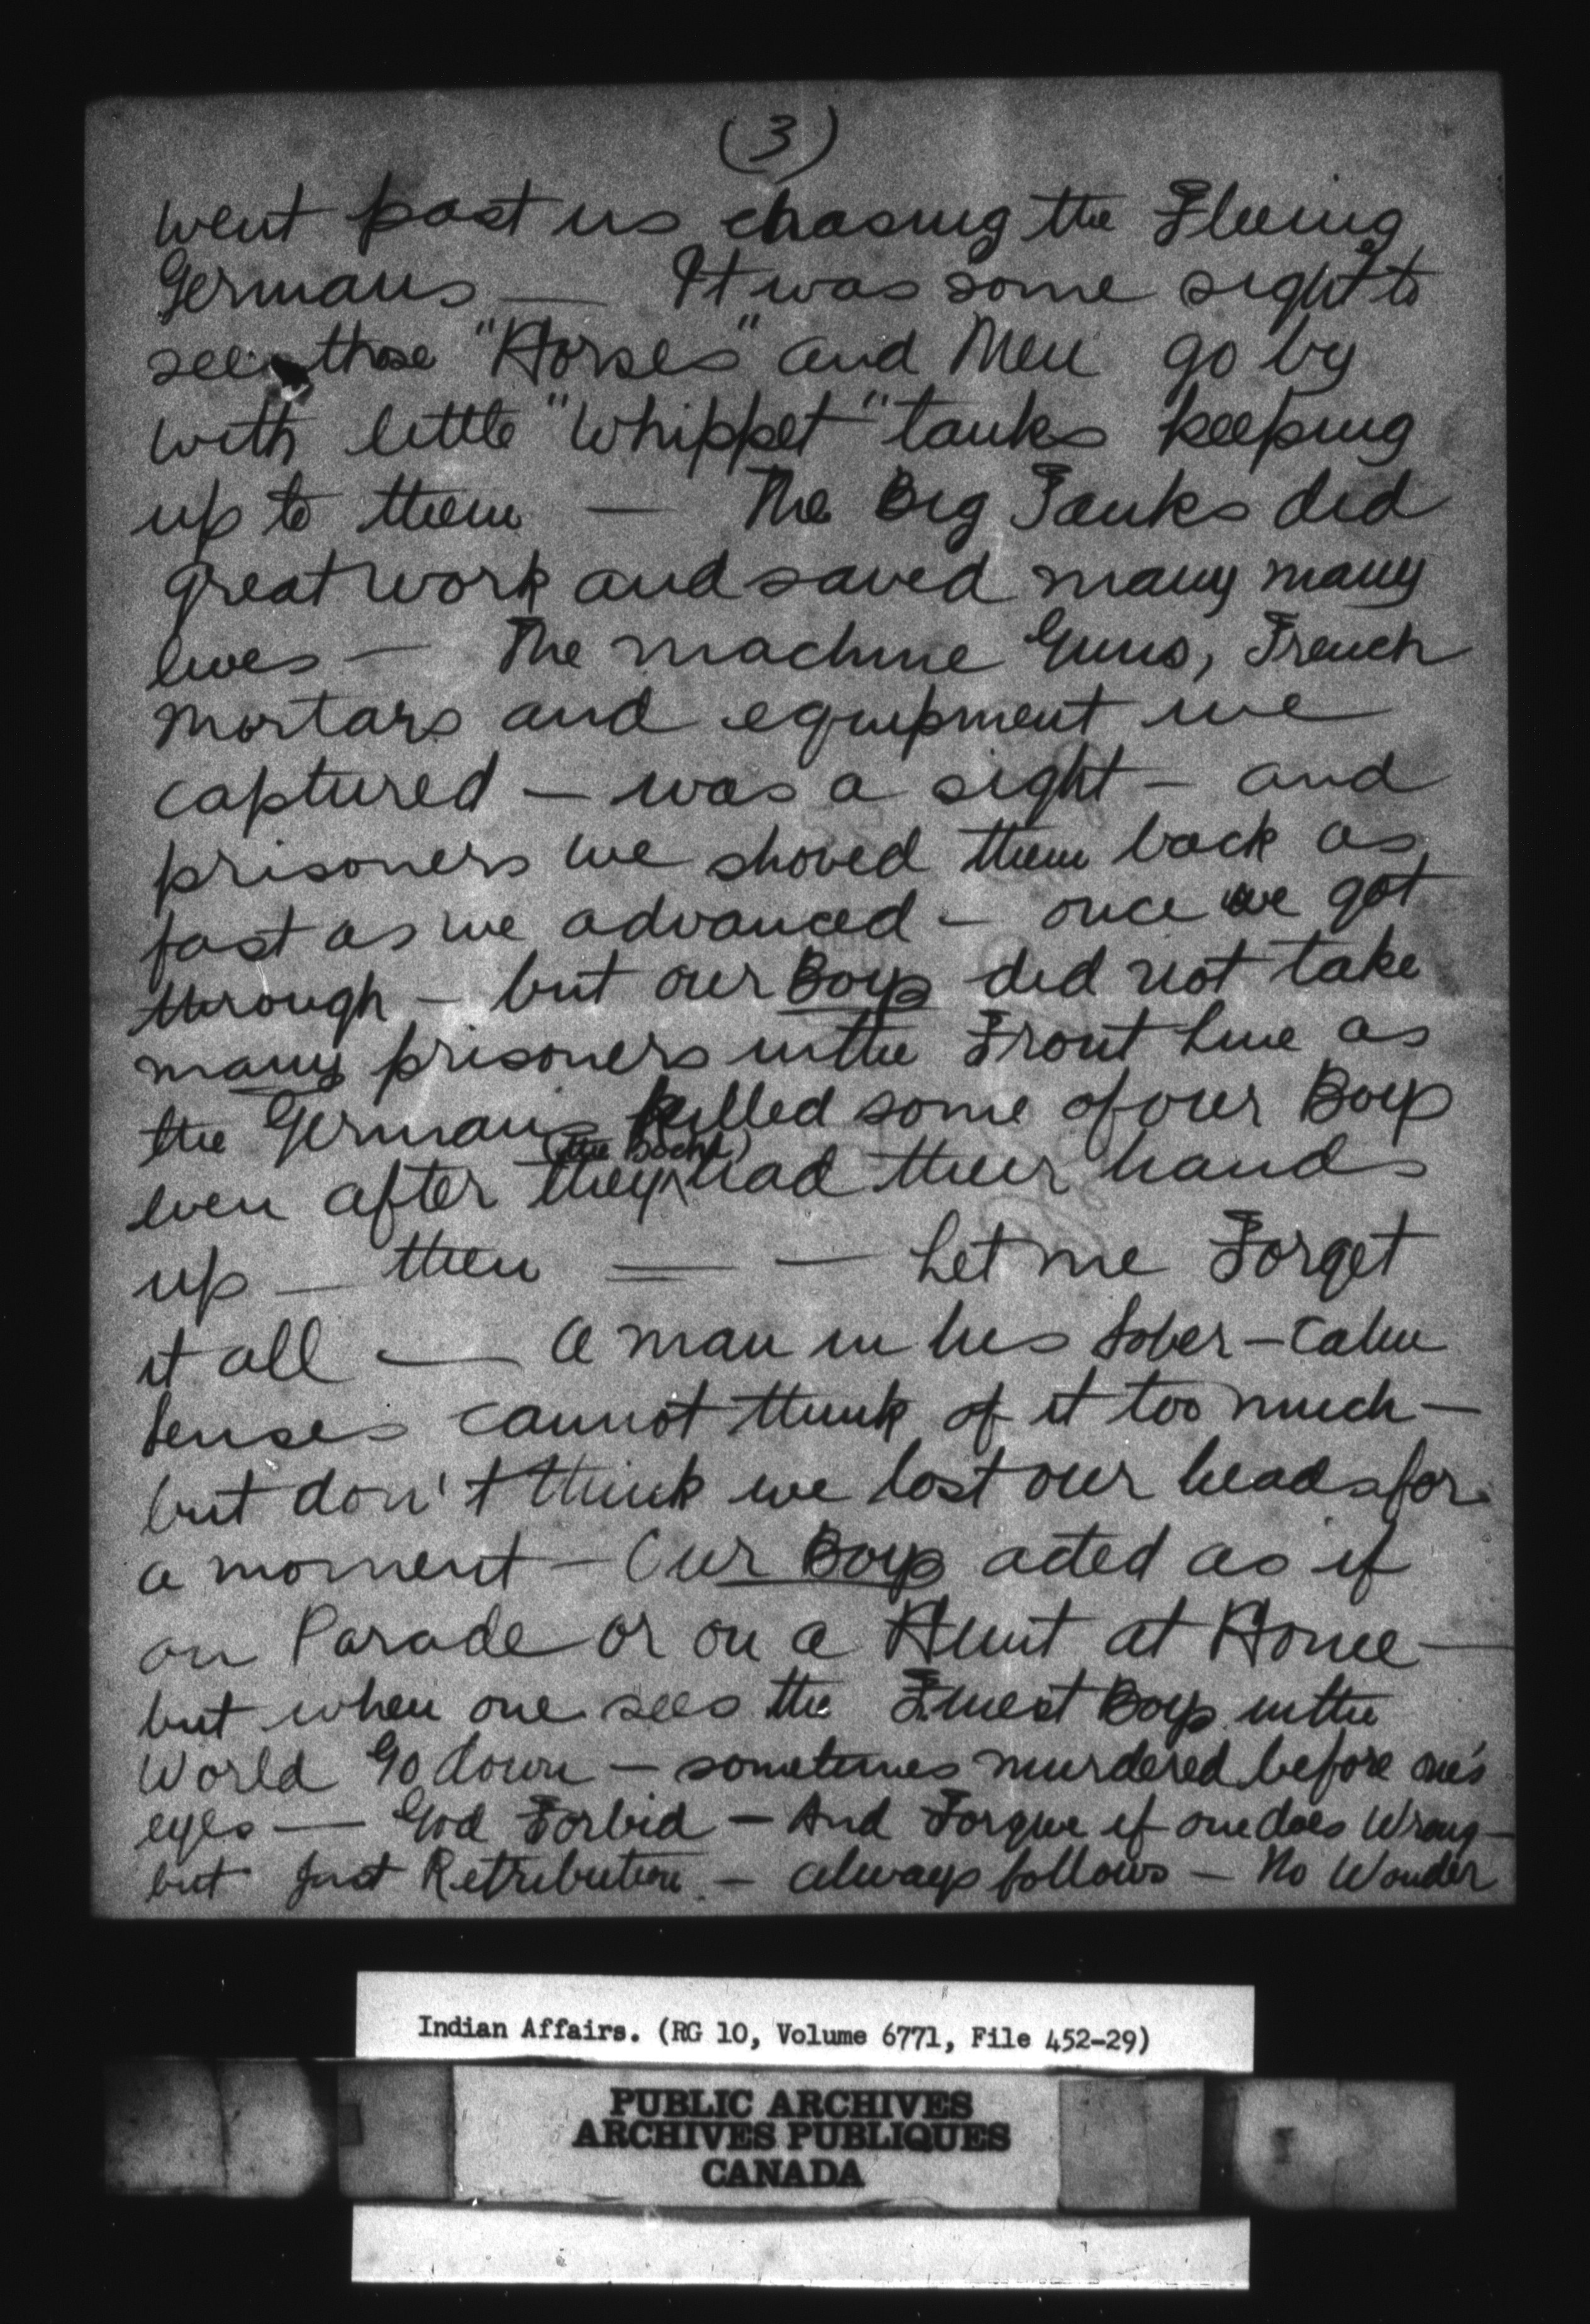 (3)
went past us chasing the Fleeing
Germans — It was some sight to
see those "Horses" and Men go by
with little "Whippet" tanks keeping
up to them — The Big Tanks did
great work and saved many many
lives — The machine Guns, Trench
Mortars and equipment we
captured — was a sight — and
prisoners we shoved them back as
fast as we advanced — once we got
through — but our Boys did not take
many prisoners in the Front Line as
the Germans killed some of our Boys
(the Boche)
even after they ^ had their hands
up — then — — Let me Forget
it all — A man in his Sober — Calm
Senses cannot think of it too much —
but don't think we lost our heads for
a moment — Our Boys acted as if
on Parade or on a Hunt at Home —
but when one sees the Finest Boys in the
World Go down — sometimes murdered before one's
eyes — God Forbid — And Forgive if one does Wrong —
but Just Retribution — always follows — No Wonder
Indian Affairs. (RG 10, Volume 6771, File 452-29)
PUBLIC ARCHIVES
ARCHIVES PUBLIQUES
CANADA